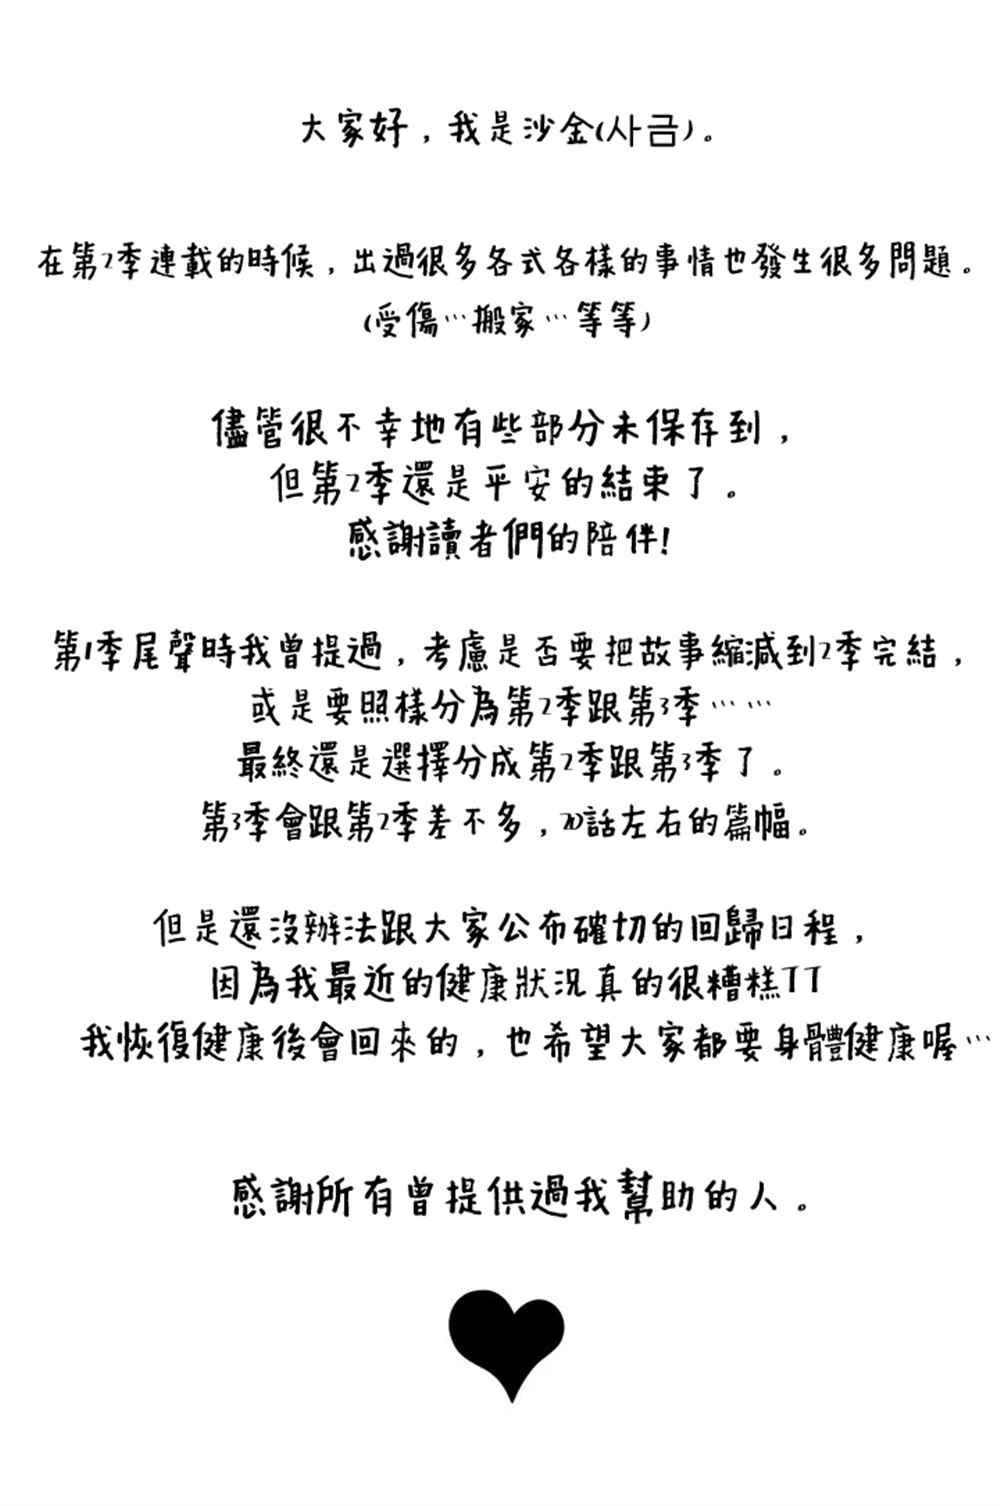 大家好，我是沙金(사금)。
在第2季連載的時候，出過很多各式各樣的事情也發生很多問題。
(受傷…搬家…等等)
儘管很不幸地有些部分未保存到，
但第2季還是平安的結束了。
感謝讀者們的陪伴!
第1季尾聲時我曾提過，考慮是否要把故事縮減到2季完結，
或是要照樣分為第2季跟第3季……
最終還是選擇分成第2季跟第3季了。
第3季會跟第2季差不多，20話左右的篇幅。
但是還沒辦法跟大家公布確切的回歸日程，
因為我最近的健康狀況真的很糟糕TT
我恢復健康後會回來的，也希望大家都要身體健康喔…
感謝所有曾提供過我幫助的人。